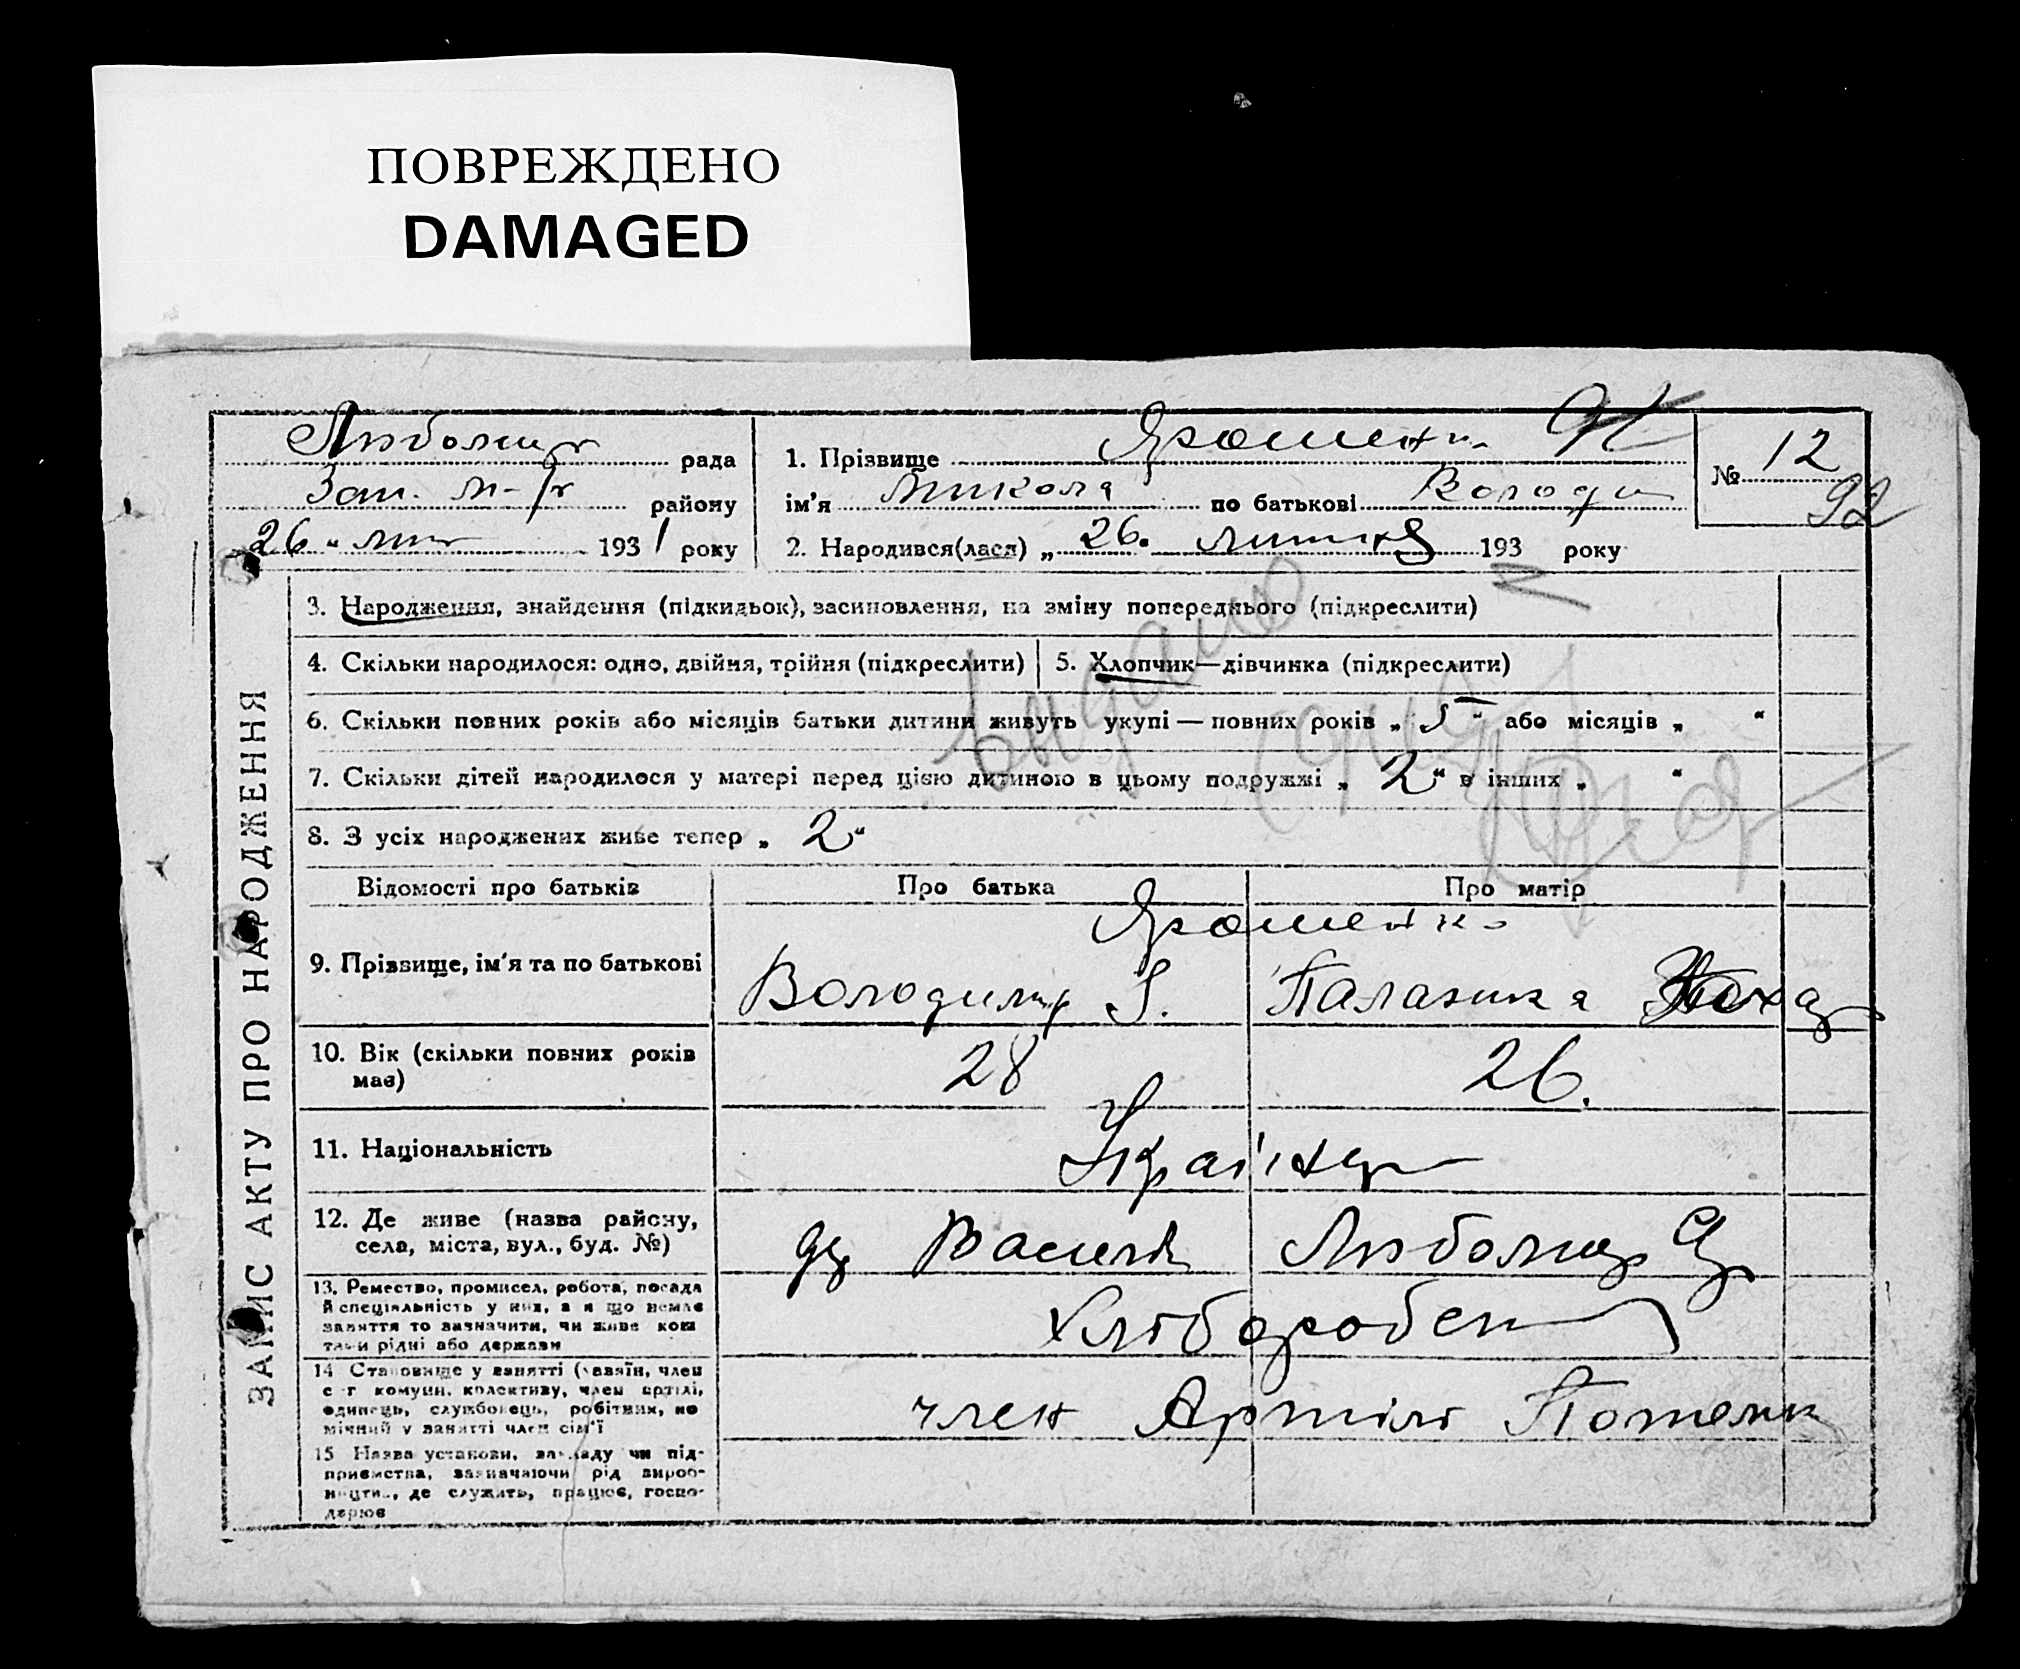 ПОВРЕЖДЕНО
DAMAGED
рада
1. Прізвище Ярошенко
№ 12
92
району
ім'я Микола по батькові Володи
26 " лип 1931 року
2. Народився(лася) „ 26. липня 193 року
3. Народження, знайдення (підкидьок), засиновлення, на зміну попереднього (підкреслити)
4. Скільки народилося: одно, двійня, трійня (підкреслити)
5. Хлопчик—дівчинка (підкреслити)
видано
6. Скільки повних років або місяців батьки дитини живуть укупі — повних років „ 5 " або місяців „ "
7. Скільки дітей народилося у матері перед цією дитиною в цьому подружжі „ 2 " в інших „ "
8. З усіх народжених живе тепер „ 2 "
Відомості про батьків
Про батька
Про матір
9. Прізвище, ім'я та по батькові
Ярошенко
Володимир
Палажка
10. Вік (скільки повних років має)
28
26.
11. Національність
Україн
12. Де живе (назва району, села, міста, вул., буд. №)
13. Ремество, промисел, робота, посада й спеціяльність у них, а я що немає заняття то зазначити, чи живе кошти рідні або держави
Хлібороб
14 Становище у занятті (хазяїн, член с-г комуни, колективу, член артілі, одинець, службовець, робітник, помічний у занятті член сім'ї
член Артілі
15 Назва установи, закладу чи підприємства, зазначаючи рід виробництва, де служить, працює, господарює
ЗАПИС АКТУ ПРО НАРОДЖЕННЯ